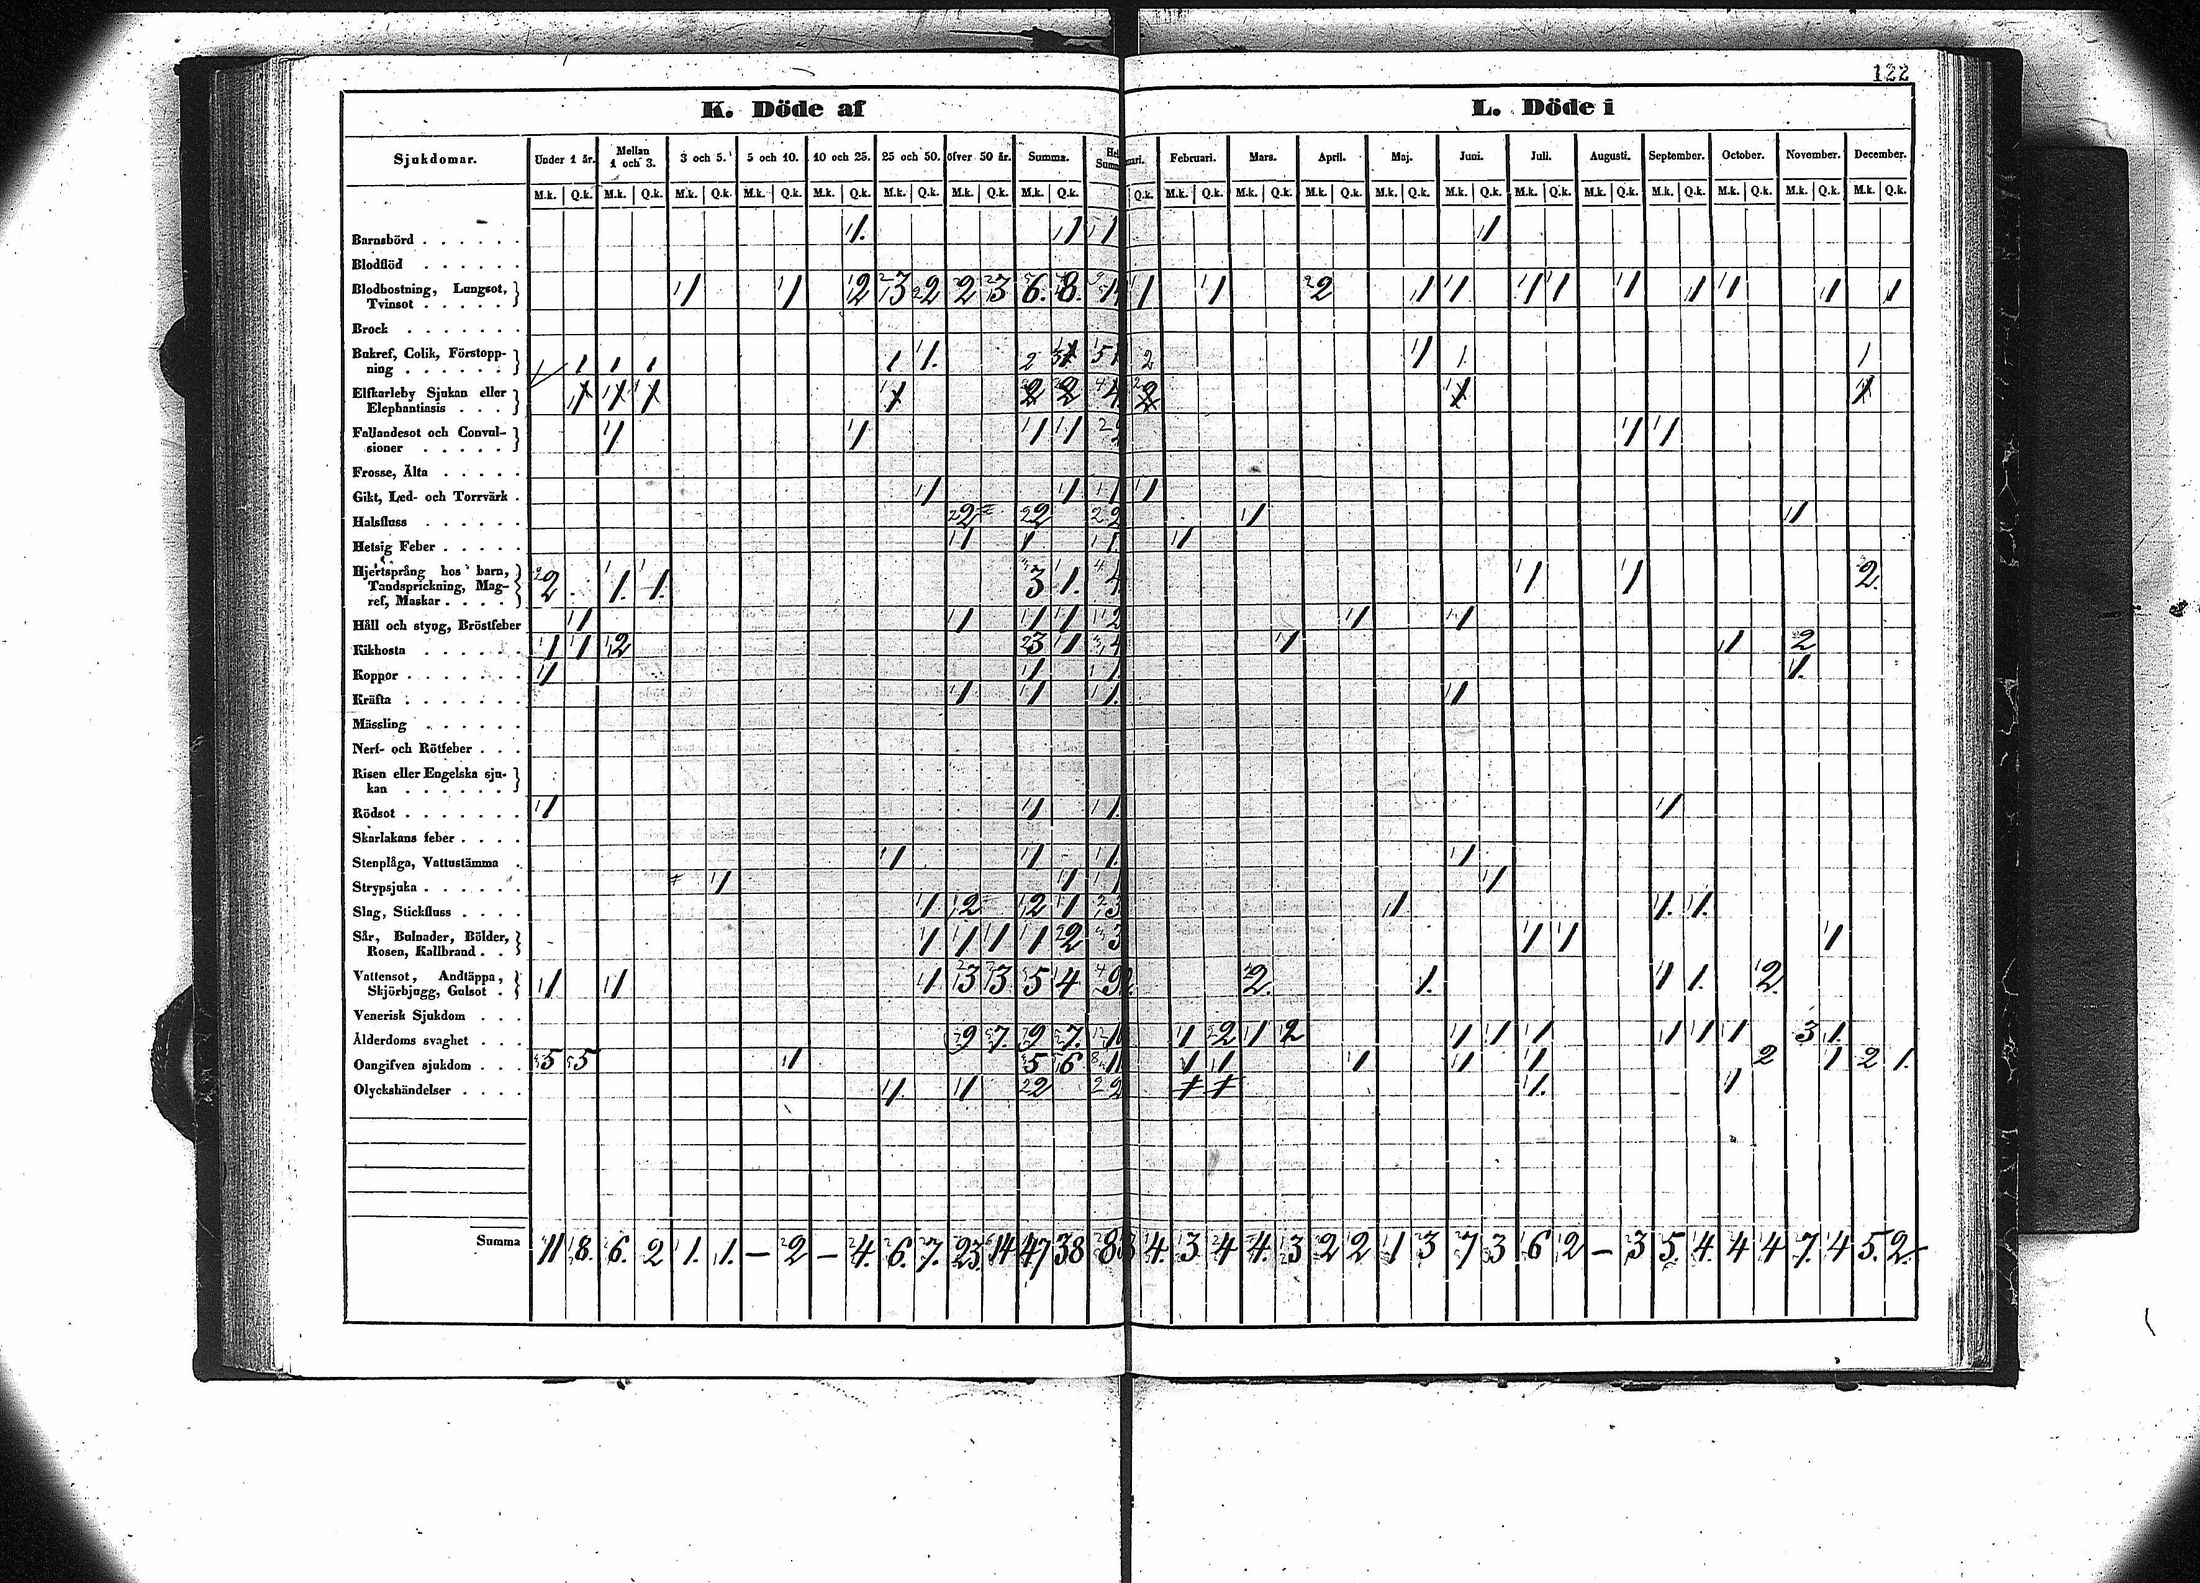 122
K. Döde af
L. Döde i
Sjukdomar. Under 1 år. Mellan 1 och 3. 3 och 5. 5 och 10. 10 och 25. 25 och 50. öfver 50 år. Summa. Februari. Mars. April. Maj. Juni. Juli. Augusti. September. October. November. December.
M.k. Q.k. M.k. Q.k. M.k. Q.k. M.k. Q.k. M.k. Q.k. M.k. Q.k. M.k. Q.k. M.k. Q.k. Q.k. M.k. Q.k. M.k. Q.k. M.k. Q.k. M.k. Q.k. M.k. Q.k. M.k. Q.k. M.k. Q.k. M.k. Q.k. M.k. Q.k. M.k. Q.k. M.k. Q.k.
Barnsbörd 1. 1 1 1
Blodflöd
Blodhostning, Lungsot,
Tvinsot 1 1 2 3 2 2 3 6. 8. 1 1 2 1 1 1 1 1 1 1 1 1
Brock
Bukref, Colik, Förstopp-
ning 1 1 1 1 1 1. 2 2 1 1 1
Elfkarleby Sjukan eller
Elephantiasis
Fallandesot och Convul-
sioner 1 1 1 1 1 1
Frosse, Älta
Gikt, Led- och Torrvärk 1 1 1 1
Halsfluss 2 2 2 1 1
Hetsig Feber 1 1 1 1
Hjertsprång hos barn,
Tandsprickning, Mag-
ref, Maskar 2 1. 1. 3 1. 4 1 1 2.
Håll och styng, Bröstfeber 1 1 1 1 2 1 1
Kikhosta 1 1 2 3 1 4 1 1 2
Koppor 1 1 1 1.
Kräfta 1 1 1. 1
Mässling
Nerf- och Rötfeber
Risen eller Engelska sju-
kan
Rödsot 1 1 1. 1
Skarlakans feber
Stenplåga, Vattustämma 1 1 1. 1
Strypsjuka 1 1 1 1
Slag, Stickfluss 1 2 2 1 3 1 1. 1.
Sår, Bulnader, Bölder,
Rosen, Kallbrand 1 1 1 1 2 3 1 1 1
Vattensot, Andtäppa,
Skjörbjugg, Gulsot 1 1 1 3 3 5 4 9 2. 1. 1 1. 2.
Venerisk Sjukdom
Ålderdoms svaghet 9 7. 9 7. 1 2 1 2 1 1 1 1 1 1 3 1.
Oangifven sjukdom 5 5 1 5 6 11 1 1 1 1 1 2 1 2 1.
Olyckshändelser 1. 1 2 2 1. 1
Summa 11 8. 6. 2 1. 1. — 2 — 4. 6. 7. 23. 14 47 38 4. 3 4 4. 3 2 2 1 3 7 3 6 2 — 3 5. 4. 4 4 7. 4 5. 2.